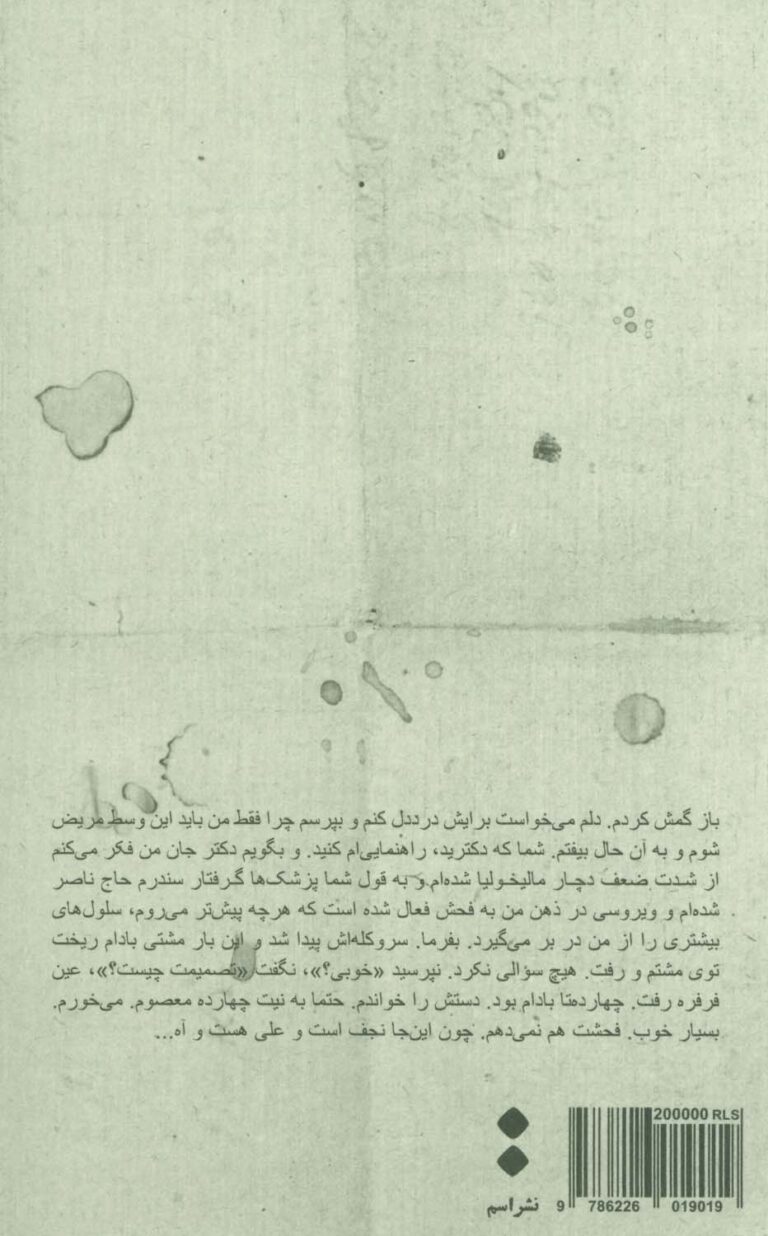 باز گمش کردم. دلم می‌خواست برایش درددل کنم و بپرسم چرا فقط من باید این وسط مریض
شوم و به آن حال بیفتم. شما که دکترید، راهنمایی‌ام کنید. و بگویم دکتر جان من فکر می‌کنم
از شدت ضعف دچار مالیخولیا شده‌ام و به قول شما پزشک‌ها گرفتار سندرم حاج ناصر
شده‌ام و ویروسی در ذهن من به فحش فعال شده است که هرچه پیش‌تر می‌روم، سلول‌های
بیشتری را از من در بر می‌گیرد. بفرما. سروکله‌اش پیدا شد و این بار مشتی بادام ریخت
توی مشتم و رفت. هیچ سؤالی نکرد. نپرسید «خوبی؟»، نگفت «تصمیمت چیست؟»، عین
فرفره رفت. چهارده‌تا بادام بود. دستش را خواندم. حتما به نیت چهارده معصوم. می‌خورم.
بسیار خوب. فحشت هم نمی‌دهم. چون این‌جا نجف است و علی هست و آه...
200000 RLS
نشر اسم
9 786226 019019